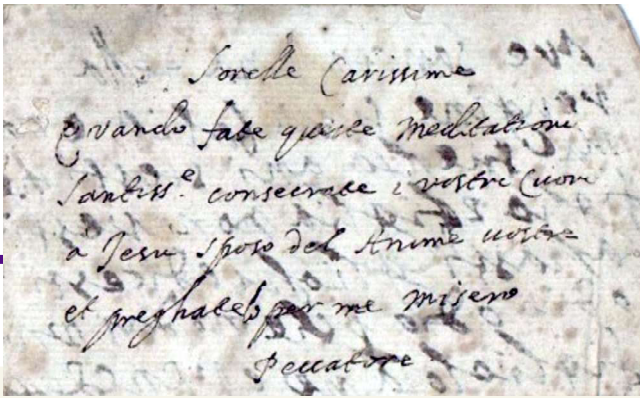 Sorelle Carissime
Quando fate queste Meditationi
Santiss.e consecrate i vostri Cuori
à Jesu sposo del Anime vostre
et preghatelo per me misero
Peccatore